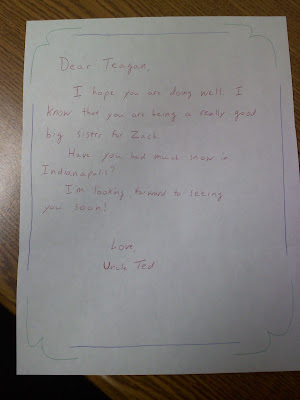 Dear Teagan,
I hope you are doing well. I
know that you are being a really good
big sister for Zach.
Have you had much snow in
Indianapolis?
I'm looking forward to seeing
you soon!
Love,
Uncle Ted